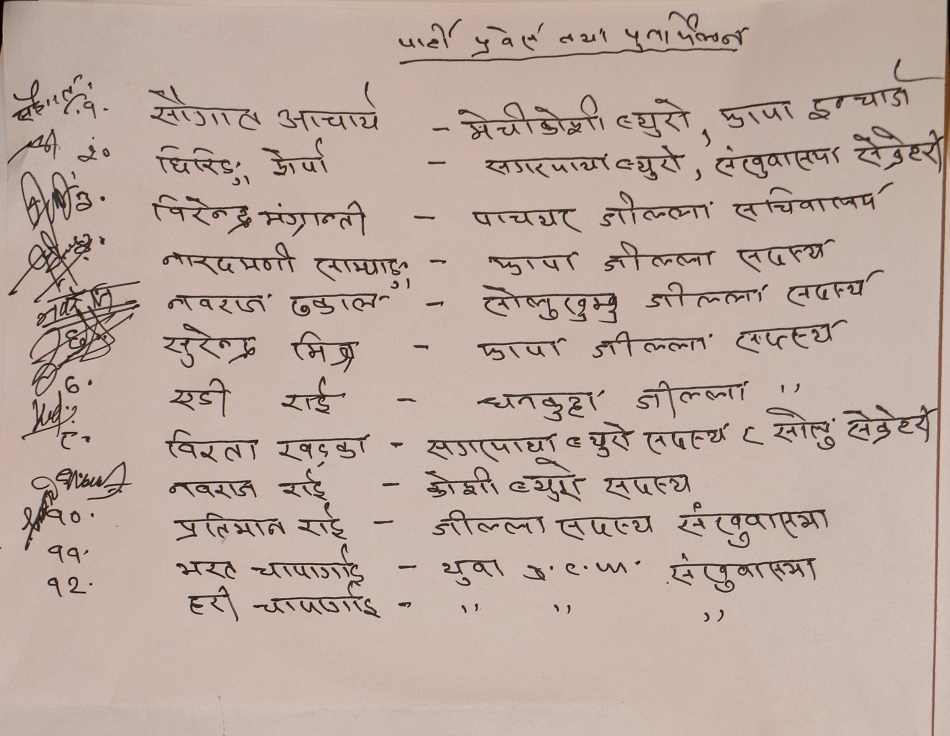 पार्टी प्रवेश तथा
१. सौगात आचार्य - मेचीकोशी ब्युरो, झापा इन्चार्ज
२. - सगरमाथा ब्युरो, संखुवासभा सेक्रेटरी
३. विरेन्द्र मंग्रान्ती - पाचथर जील्ला सचिवालय
नारदमणी साम्पाङ - झापा जील्ला सदस्य
नवराज ढकाल - सोलुखुम्बु जील्ला सदस्य
सुरेन्द्र मिश्र - झापा जील्ला सदस्य
एडी राई - धनकुटा जील्ला ,,
८. विरता खड्का - सगरमाथा ब्युरो सदस्य र सोलु सेक्रेटरी
नवराज राई - कोशी ब्युरो सदस्य
१०. प्रतिमान राई - जील्ला सदस्य संखुवासभा
११. भरत चापागाई - युवा संखुवासभा
१२. हरी चापागाई - ,, ,, ,,